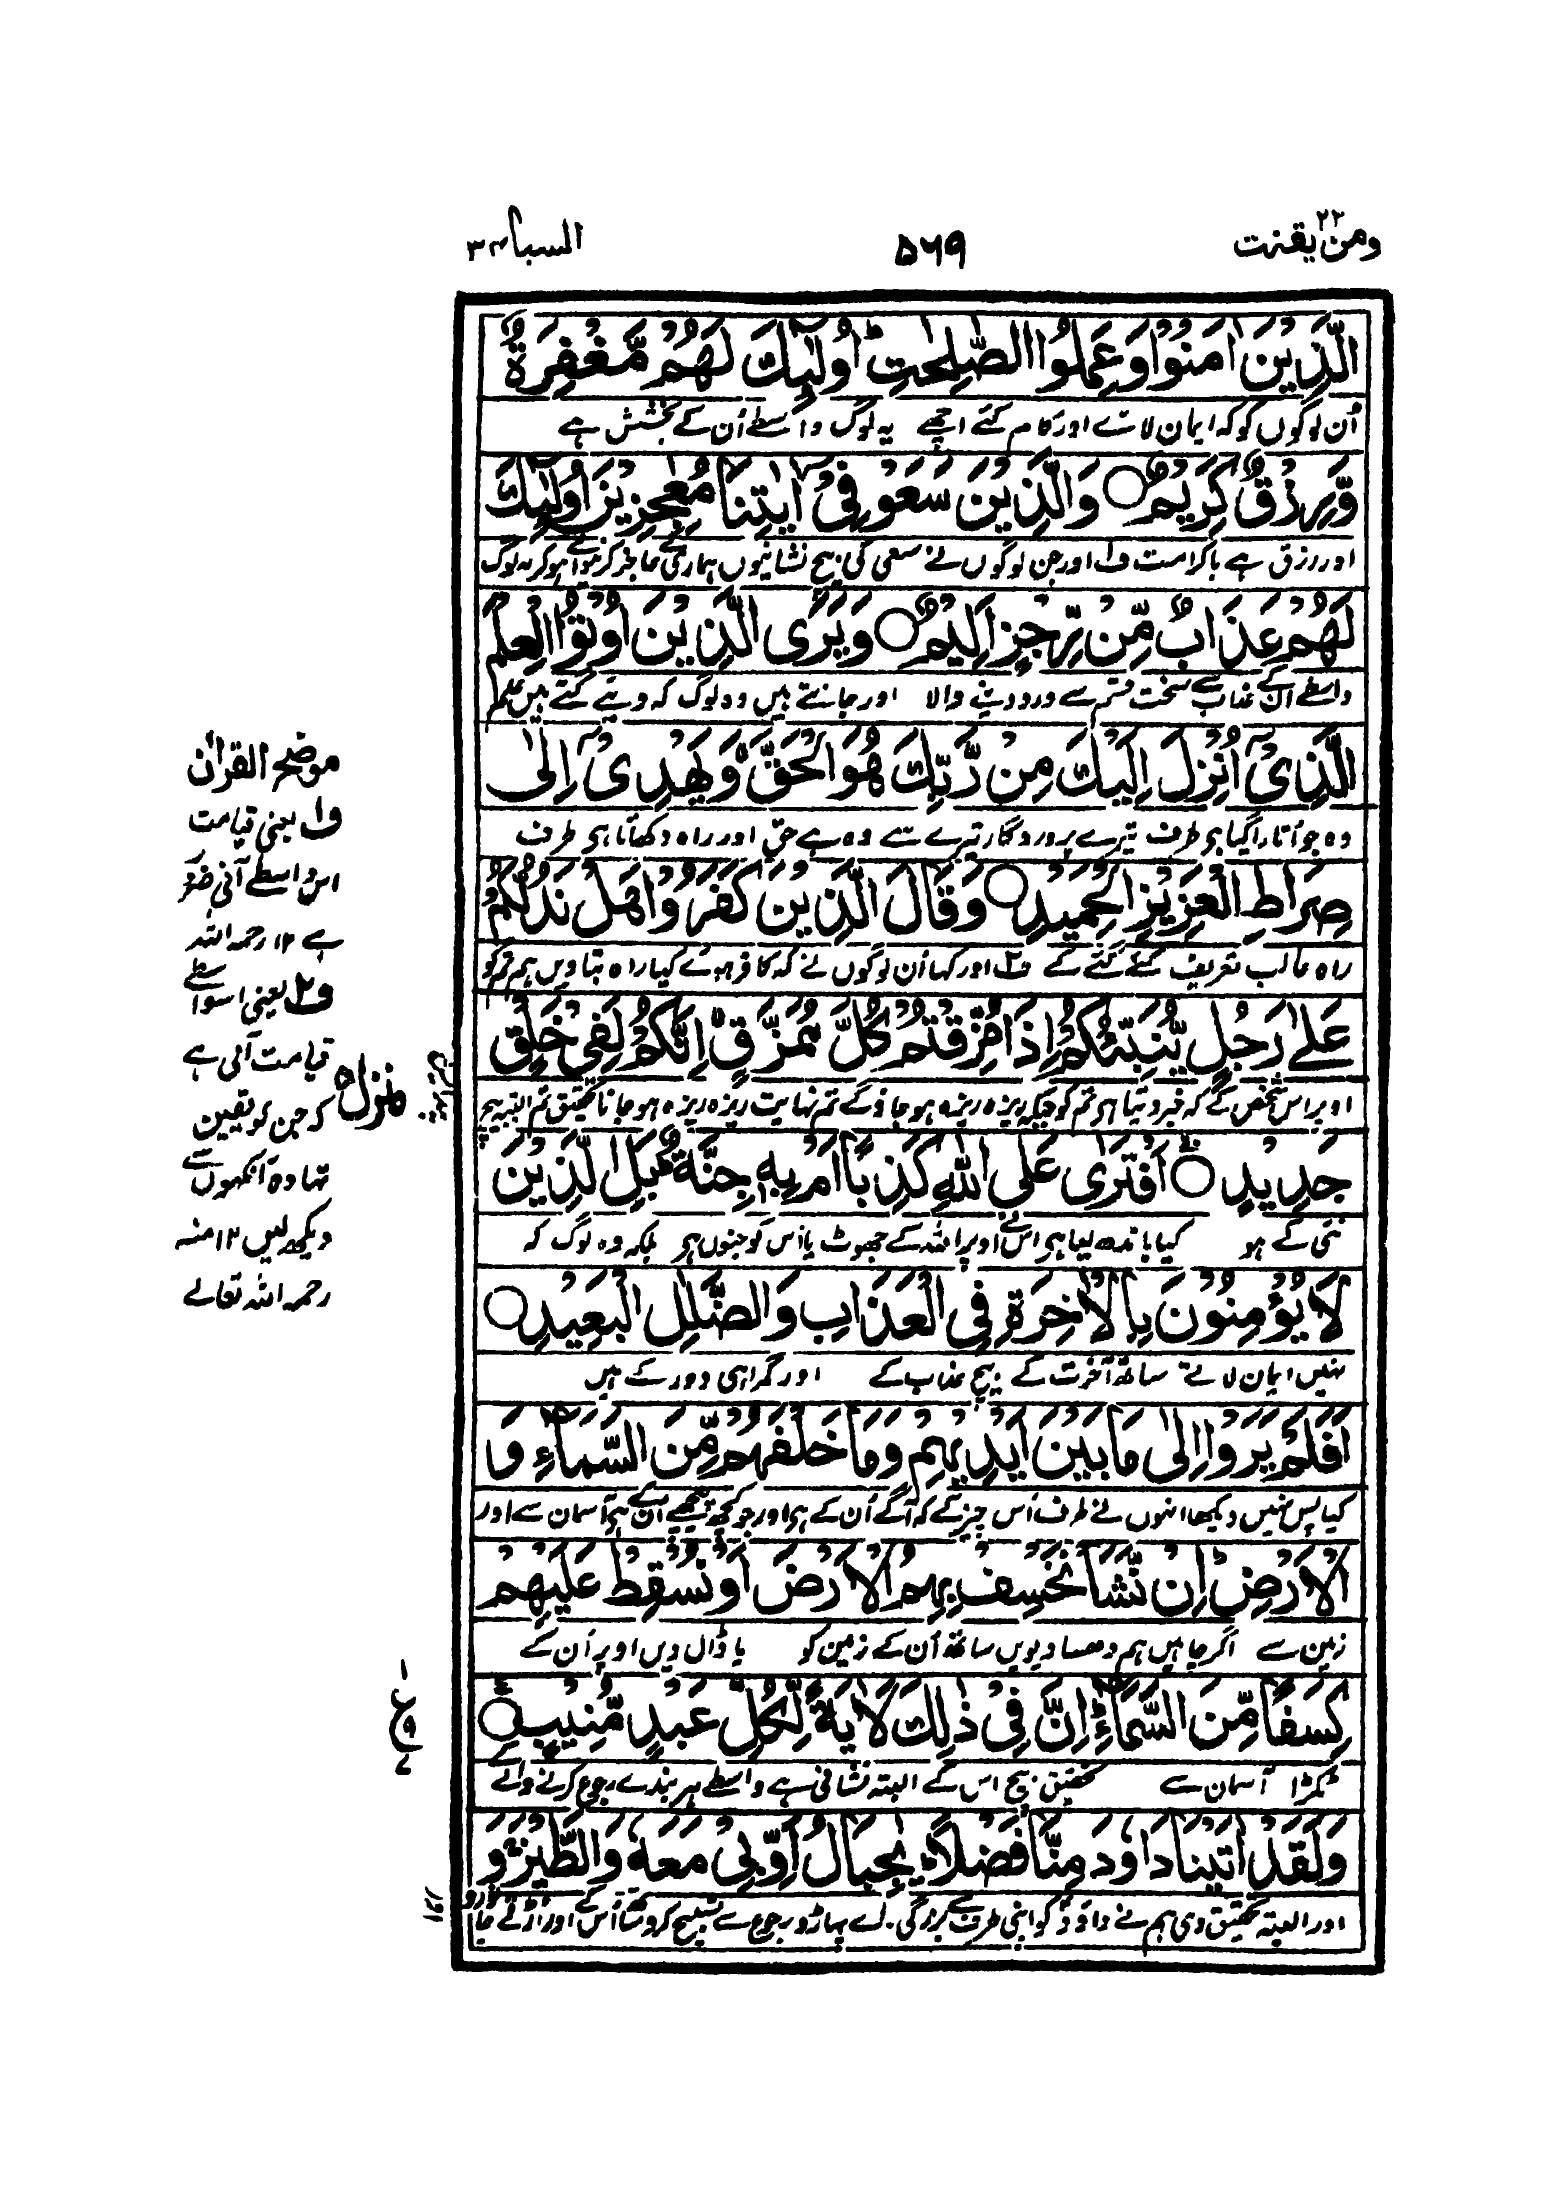 ومن یقنت ۲۲
۵۶۹
السبا ۳۴
الَّذِيْنَ اٰمَنُوْا وَعَمِلُوا الصّٰلِحٰتِ ؕ اُولٰٓئِكَ لَهُمْ مَّغْفِرَةٌ
اُن لوگوں کو کہ ایمان لائے اور کام کئے اچھے یہ لوگ واسطے اُن کے بخشش ہے
وَّرِزْقٌ كَرِيْمٌ ○ وَالَّذِيْنَ سَعَوْ فِيْٓ اٰيٰتِنَا مُعٰجِزِيْنَ اُولٰٓئِكَ
اور رزق ہے باکرامت ف۱ اور جن لوگوں نے سعی کی بیچ نشانیوں ہماری کے عاجز کر ہوا ہو کر یہ لوگ
لَهُمْ عَذَابٌ مِّنْ رِّجْزٍ اَلِيْمٌ ○ وَيَرَى الَّذِيْنَ اُوْتُوا الْعِلْمَ
واسطے اُن کے عذاب ہے سخت قسم سے درد دینے والا اور جانتے ہیں وہ لوگ کہ دیئے گئے ہیں علم
الَّذِيْٓ اُنْزِلَ اِلَيْكَ مِنْ رَّبِّكَ هُوَ الْحَقَّ ۙ وَيَهْدِيْٓ اِلٰى
وہ جو اُتارا گیا ہی طرف تیرے پروردگار تیرے سے وہ ہے حق اور راہ دکھاتا ہی طرف
صِرَاطِ الْعَزِيْزِ الْحَمِيْدِ ○ وَقَالَ الَّذِيْنَ كَفَرُوْا هَلْ نَدُلُّكُمْ
راہ غالب تعریف کئے گئے کے ف۲ اور کہا اُن لوگوں نے کہ کافر ہوئے کیا راہ بتاویں ہم تم کو
عَلٰى رَجُلٍ يُّنَبِّئُكُمْ اِذَا مُزِّقْتُمْ كُلَّ مُمَزَّقٍ ۙ اِنَّكُمْ لَفِيْ خَلْقٍ
اوپر اس شخص کے کہ خبر دیتا ہی تم کو جبکہ ریزہ ریزہ ہو جاؤ گے تم نہایت ریزہ ریزہ ہو جانا تحقیق تم البتہ بیچ
جَدِيْدٍ ○ اَفْتَرٰى عَلَى اللّٰهِ كَذِبًا اَمْ بِهٖ جِنَّةٌ ؕ بَلِ الَّذِيْنَ
نئی کے ہو کیا باندھ لیا ہی اس نے اوپر اللہ کے جھوٹ یا اُس کو جنوں ہی بلکہ وہ لوگ کہ
لَا يُؤْمِنُوْنَ بِالْاٰخِرَةِ فِي الْعَذَابِ وَالضَّلٰلِ الْبَعِيْدِ ○
نہیں ایمان لاتے ساتھ آخرت کے بیچ عذاب کے اور گمراہی دور کے ہیں
اَفَلَمْ يَرَوْا اِلٰى مَا بَيْنَ اَيْدِيْهِمْ وَمَا خَلْفَهُمْ مِّنَ السَّمَآءِ وَ
کیا پس نہیں دیکھا انہوں نے طرف اُس چیز کے کہ آگے اُن کے ہی اور جو کچھ پیچھے ان کے ہی آسمان سے اور
الْاَرْضِ ؕ اِنْ نَّشَاْ نَخْسِفْ بِهِمُ الْاَرْضَ اَوْ نُسْقِطْ عَلَيْهِمْ
زمین سے اگر چاہیں ہم دھسا دیویں ساتھ اُن کے زمین کو یا ڈال دیں اوپر اُن کے
كِسَفًا مِّنَ السَّمَآءِ ؕ اِنَّ فِيْ ذٰلِكَ لَاٰيَةً لِّكُلِّ عَبْدٍ مُّنِيْبٍ ○
ٹکڑا آسمان سے تحقیق بیچ اس کے البتہ نشانی ہے واسطے ہر بندے رجوع کرنے والے
وَلَقَدْ اٰتَيْنَا دَاوٗدَ مِنَّا فَضْلًا ؕ يٰجِبَالُ اَوِّبِيْ مَعَهٗ وَالطَّيْرَ ۚ وَ
اور البتہ تحقیق دی ہم نے داؤد کو اپنی طرف سے بزرگی۔ اے پہاڑو رجوع سے تسبیح کرو ساتھ اُس کے اور اُڑتے جانورو
موضح القراٰن
ف۱ یعنی قیامت
اس واسطے آنی ضرور
ہے ۱۲ رحمہ اللہ
ف۲ یعنی اسواسطے
قیامت آنی ہے
کہ جن کو یقین
تھا وہ آنکھوں سے
دیکھ لیں ۱۲ منہ
رحمہ اللہ تعالے
منزل ۵
ع